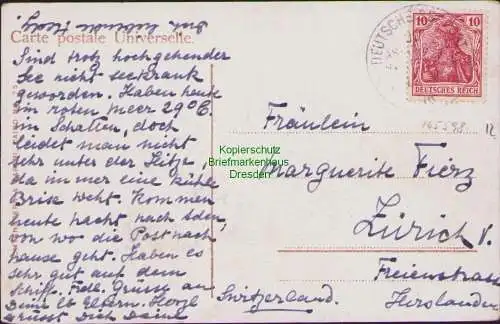 Carte postale Universelle.
Sind trotz hochgehender
See nicht seekrank
geworden. Haben heute
im roten Meer 29° C.
im Schatten, doch
leidet man nicht
sehr unter der Hitze,
da immer eine kühle
Brise weht. Kommen
heute nacht nach Aden,
von wo die Post nach
hause geht. Haben es
sehr gut auf dem
Schiffe. Grüsse an
Deine lb Eltern.
grüsst Dich Deine
10 10
DEUTSCHES REICH
DEUTSCHE
165598
12
Fräulein
Kopierschutz
Briefmarkenhaus
Dresden
Marguerite Fierz
Zürich V.
Freiestrasse
Switzerland. Hirslanden